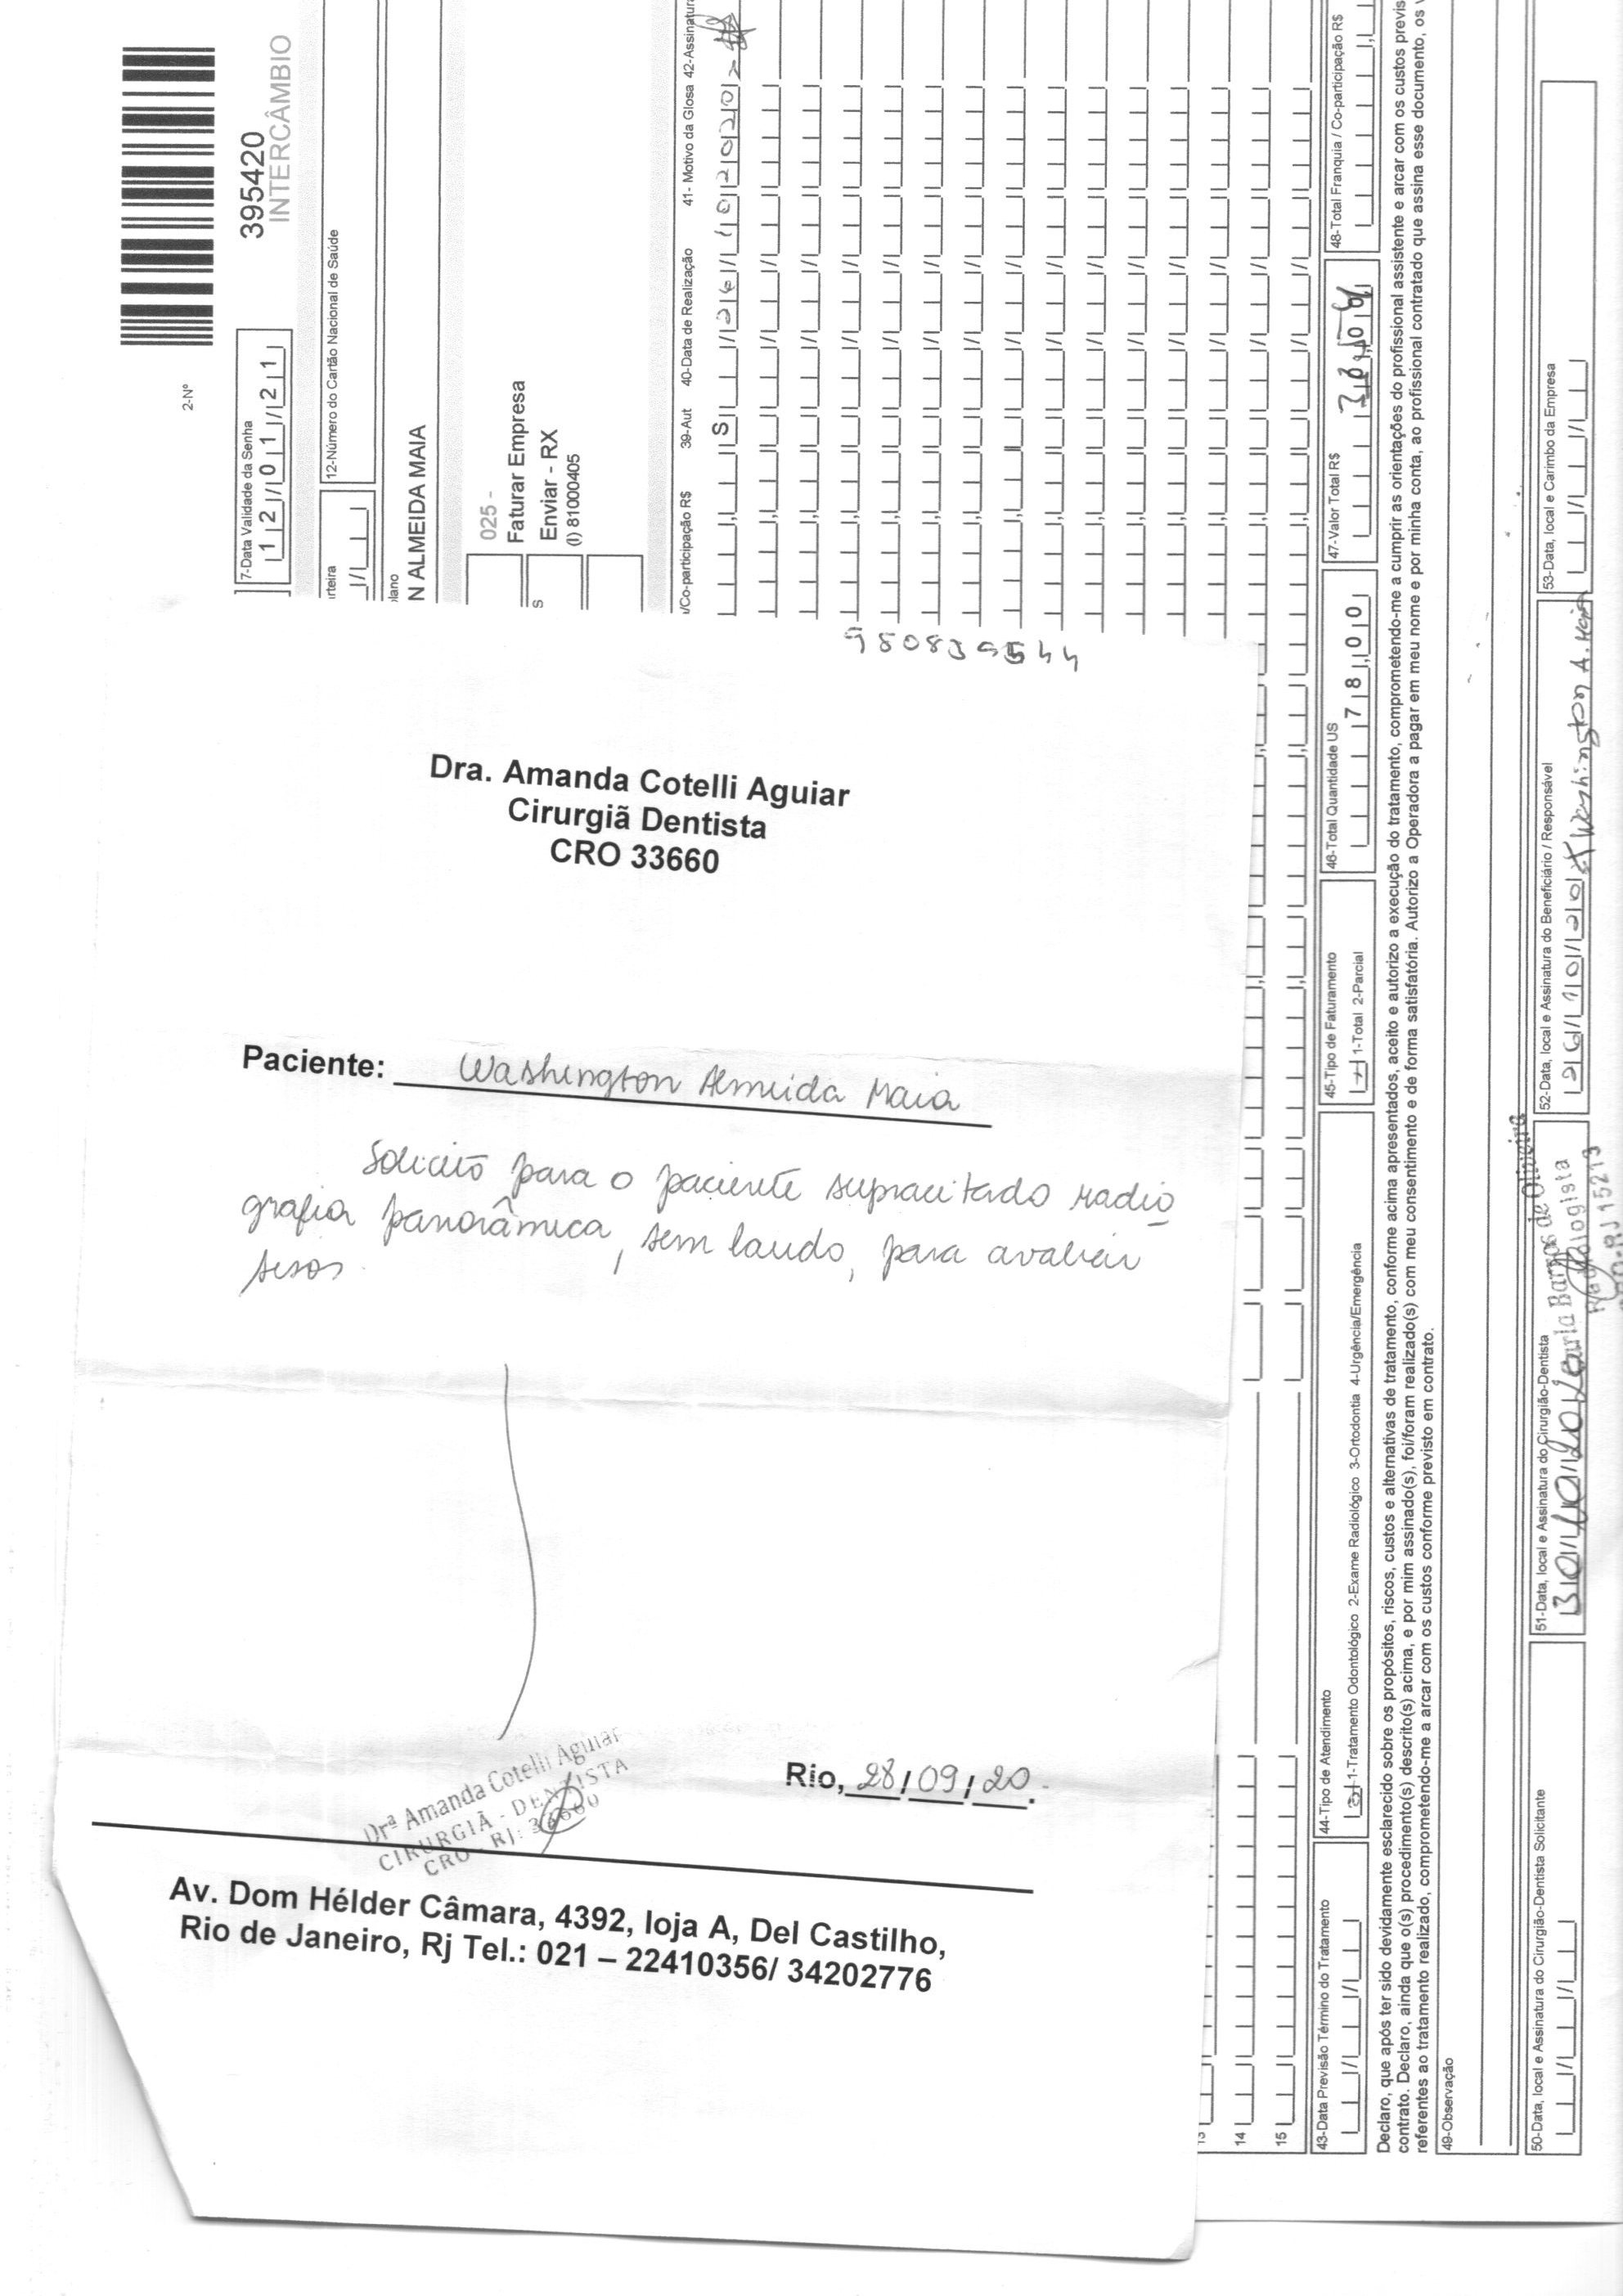 2-Nº
395420
INTERCÂMBIO
7-Data Validade da Senha
12/01/21
rteira
12-Número do Cartão Nacional de Saúde
plano
N ALMEIDA MAIA
025 -
Faturar Empresa
Enviar - RX
(I) 81000405
S
/Co-participação R$ 39-Aut 40-Data de Realização 41- Motivo da Glosa 42-Assinatura
S
980839544
Dra. Amanda Cotelli Aguiar
Cirurgiã Dentista
CRO 33660
Paciente: Washington Almeida Maia
Solicito para o paciente supracitado radio
grafia panorâmica, sem laudo, para avaliar
sisos
Drª Amanda Cotelli Aguiar
CIRURGIÃ - DENTISTA
CRO RJ: 33660
Rio, 28/09/20.
Av. Dom Hélder Câmara, 4392, loja A, Del Castilho,
Rio de Janeiro, Rj Tel.: 021 – 22410356/ 34202776
13
14
15
43-Data Previsão Término do Tratamento
44-Tipo de Atendimento
1-Tratamento Odontológico 2-Exame Radiológico 3-Ortodontia 4-Urgência/Emergência
45-Tipo de Faturamento
1-Total 2-Parcial
46-Total Quantidade US
78,00
47-Valor Total R$
48-Total Franquia / Co-participação R$
Declaro, que após ter sido devidamente esclarecido sobre os propósitos, riscos, custos e alternativas de tratamento, conforme acima apresentados, aceito e autorizo a execução do tratamento, comprometendo-me a cumprir as orientações do profissional assistente e arcar com os custos previs
contrato. Declaro, ainda que o(s) procedimento(s) descrito(s) acima, e por mim assinado(s), foi/foram realizado(s) com meu consentimento e de forma satisfatória. Autorizo a Operadora a pagar em meu nome e por minha conta, ao profissional contratado que assina esse documento, os
referentes ao tratamento realizado, comprometendo-me a arcar com os custos conforme previsto em contrato.
49-Observação
50-Data, local e Assinatura do Cirurgião-Dentista Solicitante
51-Data, local e Assinatura do Cirurgião-Dentista
de Oliveira
Radiologista
15213
52-Data, local e Assinatura do Beneficiário / Responsável
26/10/20 Washington A. Maia
53-Data, local e Carimbo da Empresa